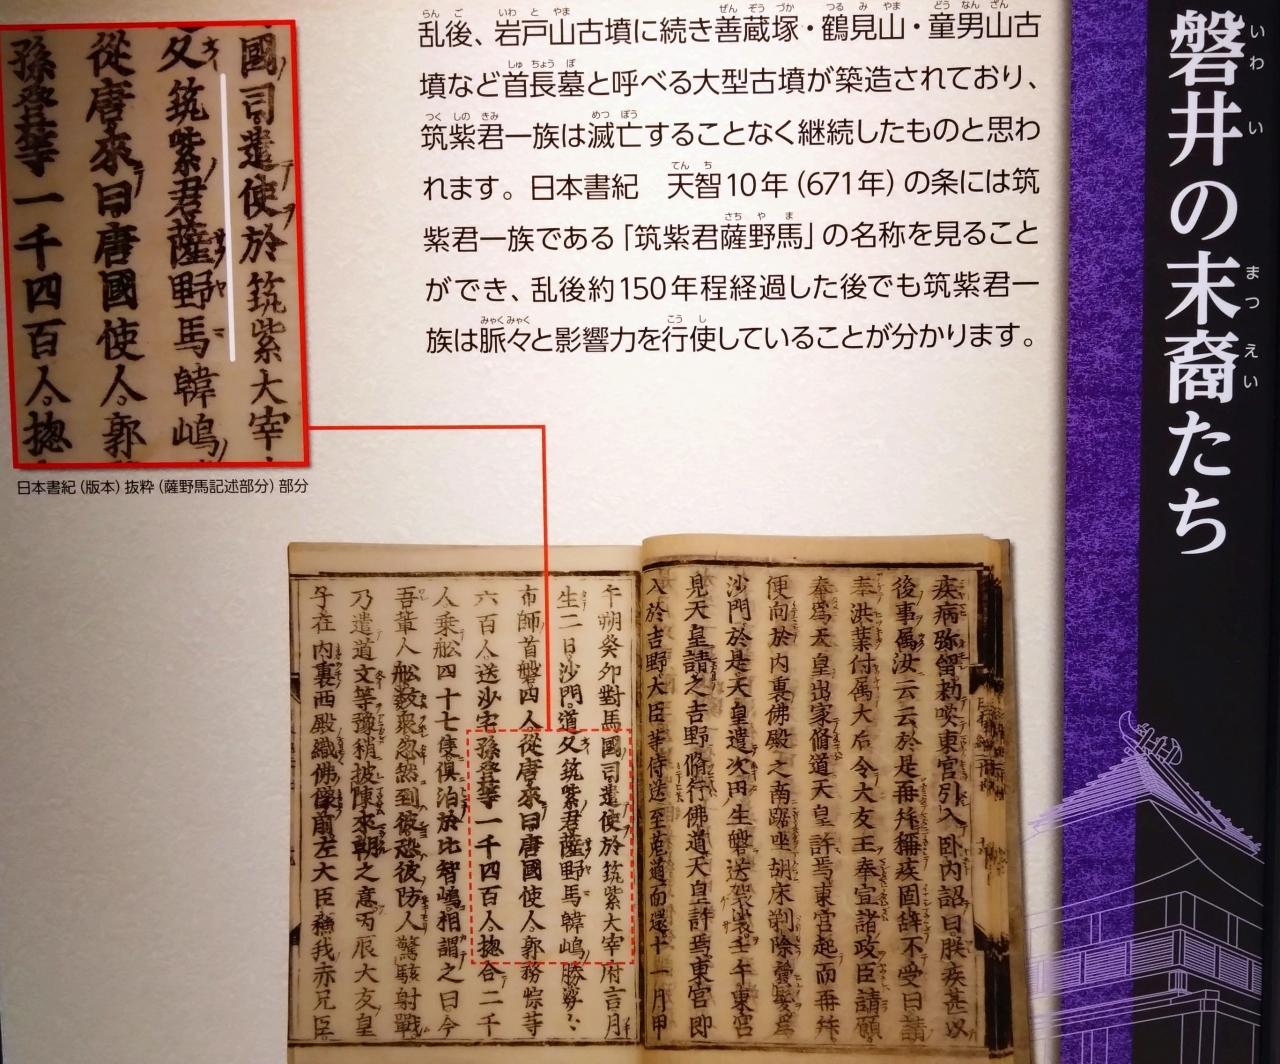 磐井の末裔たち
いわい
まつえい
乱後、岩戸山古墳に続き善蔵塚・鶴見山・童男山古
墳など首長墓と呼べる大型古墳が築造されており、
筑紫君一族は滅亡することなく継続したものと思わ
れます。日本書紀　天智10年（671年）の条には筑
紫君一族である「筑紫君薩野馬」の名称を見ること
ができ、乱後約150年程経過した後でも筑紫君一
族は脈々と影響力を行使していることが分かります。
らんご
いわとやま
ぜんぞうづか
つるみやま
どうなんざん
しゅちょうぼ
つくしのきみ
めつぼう
てんち
さちやま
みゃくみゃく
こうし
國司遣使於筑紫大宰
父筑紫君薩野馬韓嶋
從唐來曰唐國使人郭
孫登等一千四百人揔
日本書紀（版本）抜粋（薩野馬記述部分）部分
疾病弥留勅喚東宮引入臥内詔曰朕疾甚以
後事属汝云云於是再拜稱疾固辞不受曰請
奉洪業付属大后令大友王奉宣諸政臣請願
奉爲天皇出家脩道天皇許焉東宮起而再拜
便向於内裏佛殿之南踞坐胡床剃除鬢髪爲
沙門於是天皇遣次田生磐送袈裟壬午東宮
見天皇請之吉野脩行佛道天皇許焉東宮即
入於吉野大臣等侍送至菟道而還十一月甲
午朔癸卯對馬國司遣使於筑紫大宰府言月
生二日沙門道父筑紫君薩野馬韓嶋勝娑々
布師首磐四人從唐來曰唐國使人郭務悰等
六百人送沙宅孫登等一千四百人揔合二千
人乘舩四十七隻倶泊於比智嶋相謂之曰今
吾輩人舩數衆忽然到彼恐彼防人驚駭射戰
乃遣道文等豫稍披陳來朝之意丙辰大友皇
子在内裏西殿織佛像前左大臣蘇我赤兄臣